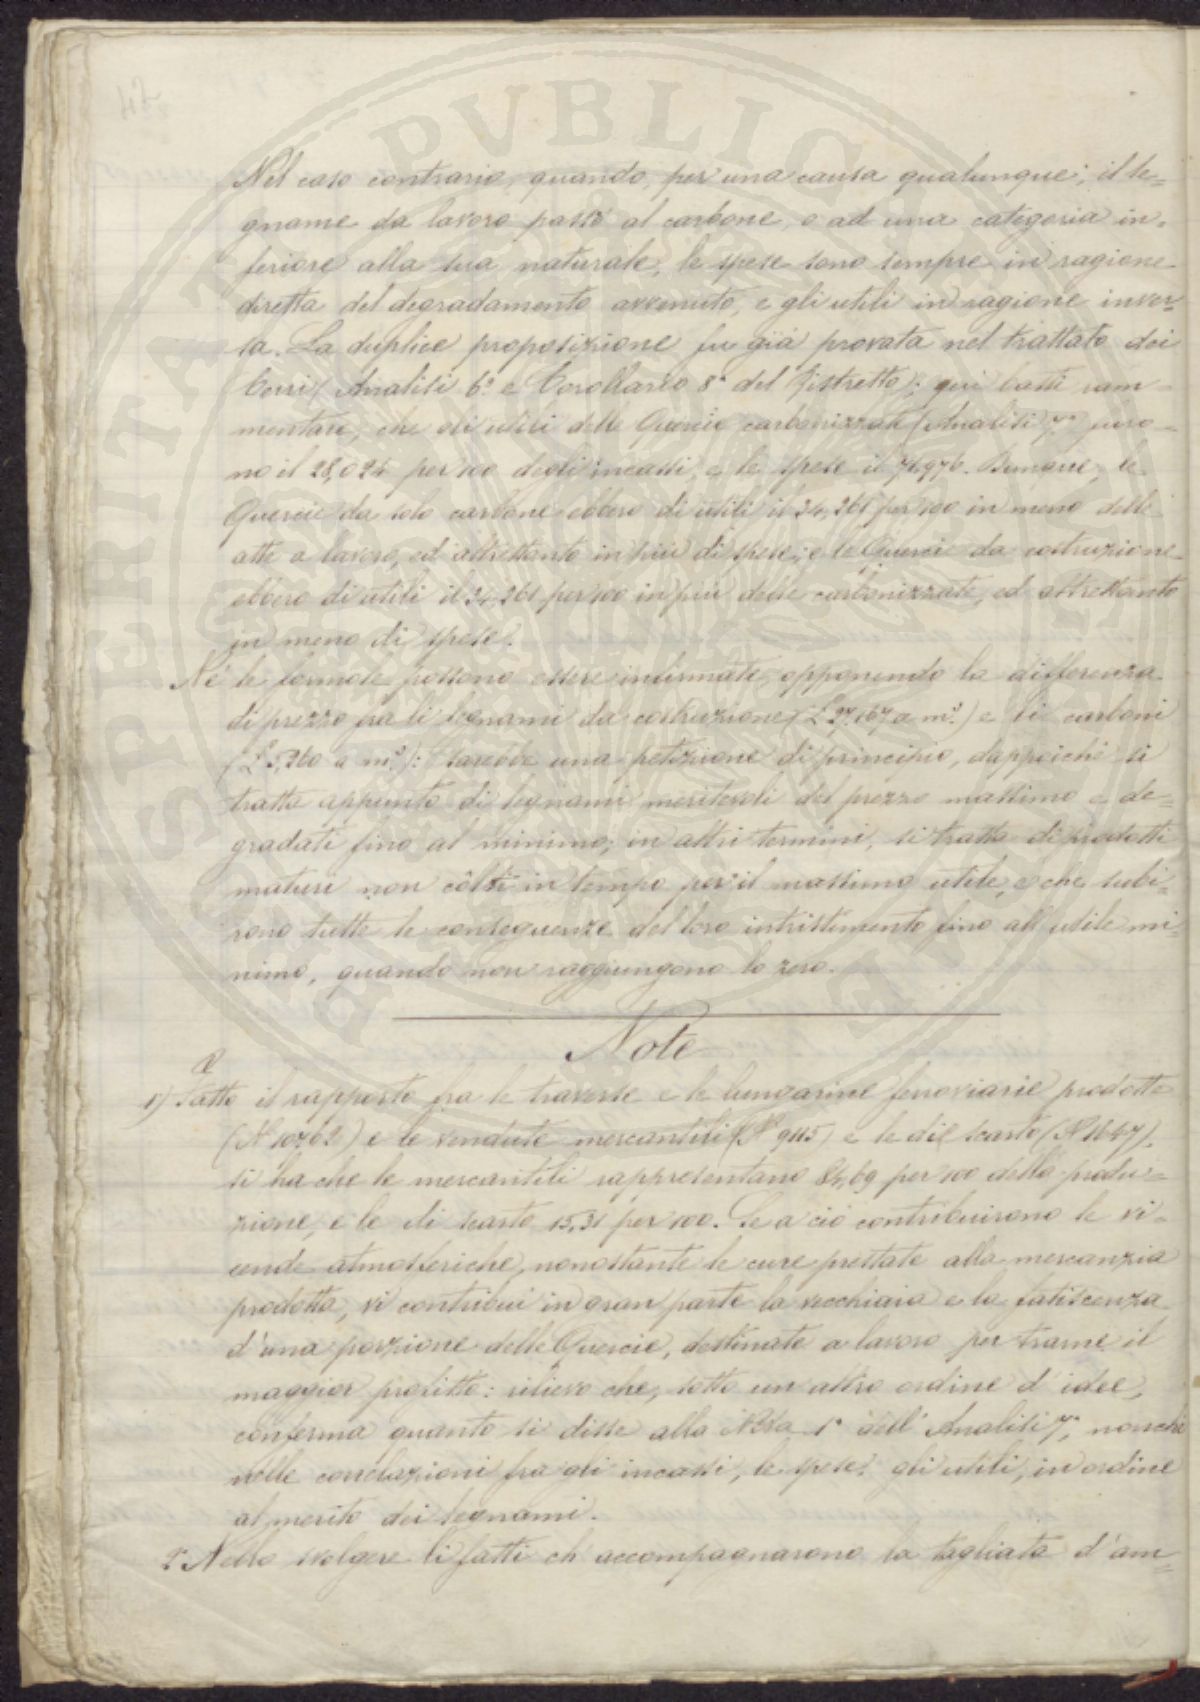 Nel caso contrario, quando, per una causa qualunque, il le=
gname da lavoro passò al carbone, o ad una categoria in=
feriore alla sua naturale, le spese sono sempre in ragione
diretta del degradamento avvenuto, e gli utili in ragione inver=
sa. La duplice proposizione fu già provata nel trattato dei
Cerri (Analisi 6ª e Corollario 8º del Ristretto); qui basti ram=
mentare, che gli utili delle Quercie carbonizzate (Analisi 7ª) furo=
no il 28,024 per 100 degli incassi, e le spese il 71,976. Dunque, le
Quercie da solo carbone ebbero di utili il 24,261 per 100 in meno delle
atte a lavoro, ed altrettanto in più di spese; e le Quercie da costruzione
ebbero di utili il 24,261 per 100 in più delle carbonizzate, ed altrettanto
in meno di spese.
Nè le formole possono essere infirmate, opponendo la differenza
di prezzo fra li legnami da costruzione (£ 27,167 a m³.) e li carboni
(£ 5,260 a m³.): Sarebbe una petizione di principio, dappoichè si
tratta appunto di legnami meritevoli del prezzo massimo e de=
gradati fino al minimo; in altri termini, si tratta di prodotti
maturi non còlti in tempo per il massimo utile, e che subi=
rono tutte le conseguenze del loro intristimento fino all'utile mi=
nimo, quando non raggiungono lo zero.
Note
1) Fatto il rapporto fra le traverse e le lungarine ferroviarie prodotte
(Nº 10762) e le vendute mercantili (Nº 9115) e le di scarto (Nº 1647),
si ha che le mercantili rappresentano 84,69 per 100 della produ=
zione, e le di scarto 15,31 per 100. Se a ciò contribuirono le vi=
cende atmosferiche, nonostante le cure prestate alla mercanzia
prodotta, vi contribuì in gran parte la vecchiaia e la fatiscenza
d'una porzione delle Quercie, destinate a lavoro per trarne il
maggior profitto: rilievo che, sotto un altro ordine d'idee,
conferma quanto si disse alla Nota 1ª dell'Analisi 7ª, nonchè
nelle correlazioni fra gli incassi, le spese, gli utili, in ordine
al merito dei legnami.
2º Nello svolgere li fatti ch'accompagnarono la tagliata d'am=